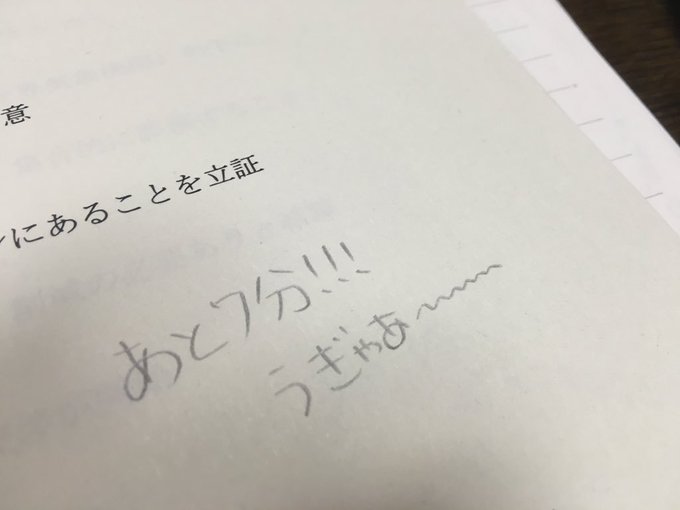 意
にあることを立証
あと7分!!!
うぎゃあ〜〜〜